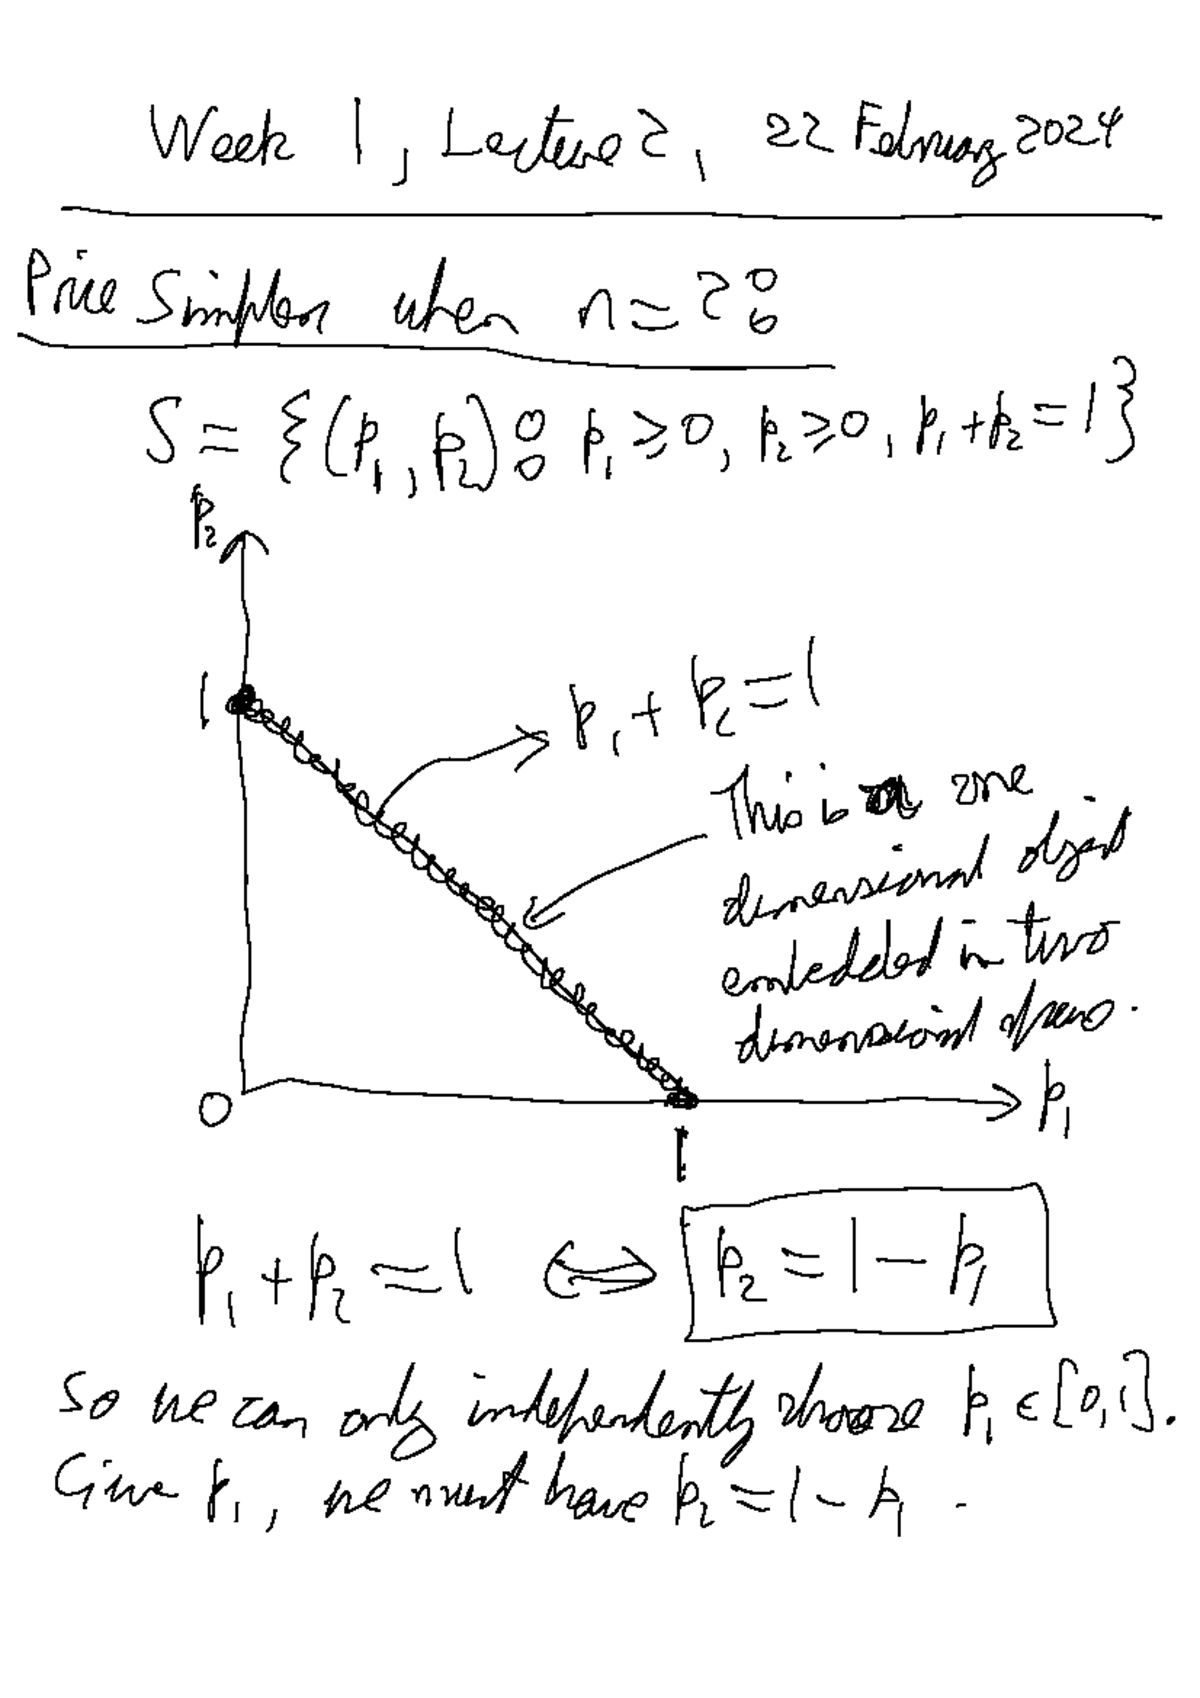 Week 1, Lecture 2, 22 February 2024
Price Simplex when n=2:
S = {(p₁, p₂): p₁ ≥ 0, p₂ ≥ 0, p₁ + p₂ = 1}
p₂
1
p₁ + p₂ = 1
This is a one
dimensional object
embedded in two
dimensional space.
0
p₁
1
p₁ + p₂ = 1 ⟺ p₂ = 1 − p₁
So we can only independently choose p₁ ∈ [0,1].
Given p₁, we must have p₂ = 1 − p₁.